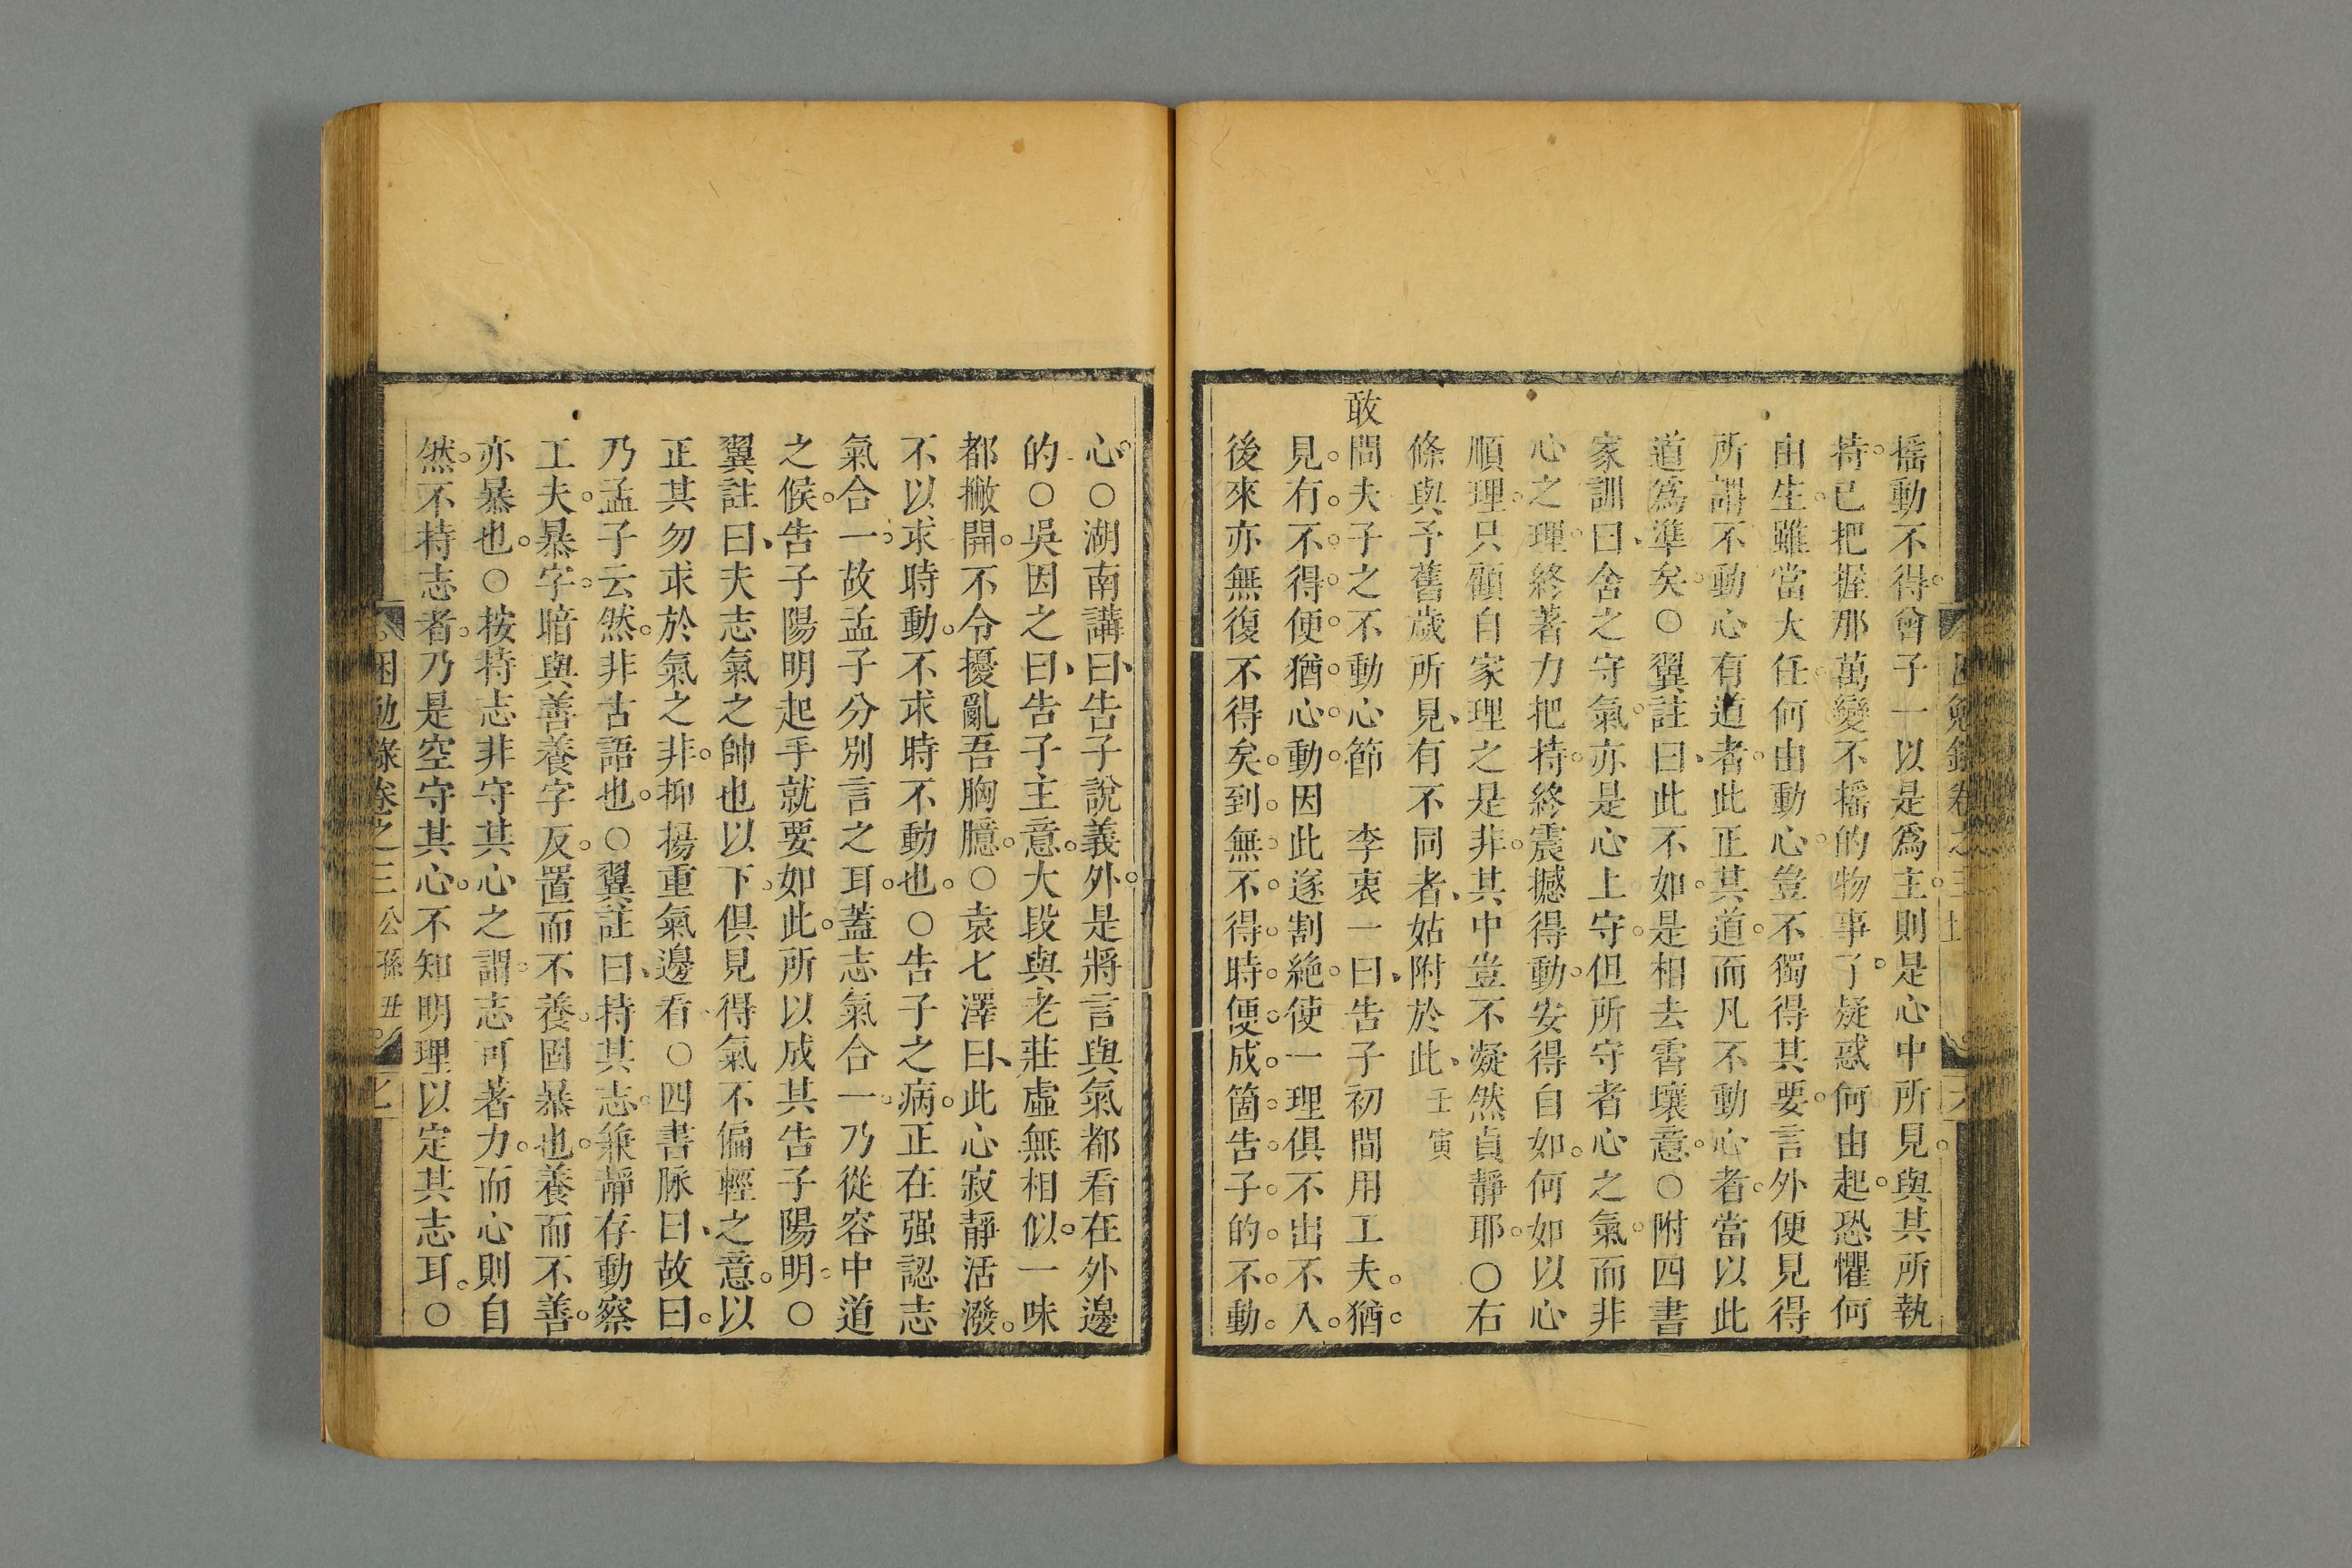 搖動不得曾子一以是爲主則是心中所見與其所執
持已把握那萬變不搖的物事了疑惑何由起恐懼何
由生雖當大任何由動心豈不獨得其要言外便見得
所謂不動心有道者此正其道而凡不動心者當以此
道爲準矣○翼註曰此不如是相去霄壤意○附四書
家訓曰舍之守氣亦是心上守但所守者心之氣而非
心之理終著力把持終震撼得動安得自如何如以心
順理只顧自家理之是非其中豈不凝然貞靜耶○右
條與予舊歲所見有不同者姑附於此壬寅
敢問夫子之不動心節　李衷一曰告子初間用工夫猶
見有不得便猶心動因此遂割絶使一理俱不出不入
後來亦無復不得矣到無不得時便成箇告子的不動
心○湖南講曰告子說義外是將言與氣都看在外邊
的○吳因之曰告子主意大段與老莊虛無相似一味
都撇開不令擾亂吾胸臆○袁七澤曰此心寂靜活潑
不以求時動不求時不動也○告子之病正在强認志
氣合一故孟子分別言之耳蓋志氣合一乃從容中道
之候告子陽明起手就要如此所以成其告子陽明○
翼註曰夫志氣之帥也以下俱見得氣不偏輕之意以
正其勿求於氣之非抑揚重氣邊看○四書脉曰故曰
乃孟子云然非古語也○翼註曰持其志兼靜存動察
工夫暴字暗與善養字反置而不養固暴也養而不善
亦暴也○按持志非守其心之謂志可著力而心則自
然不持志者乃是空守其心不知明理以定其志耳○
困勉錄卷之三 公孫丑 七